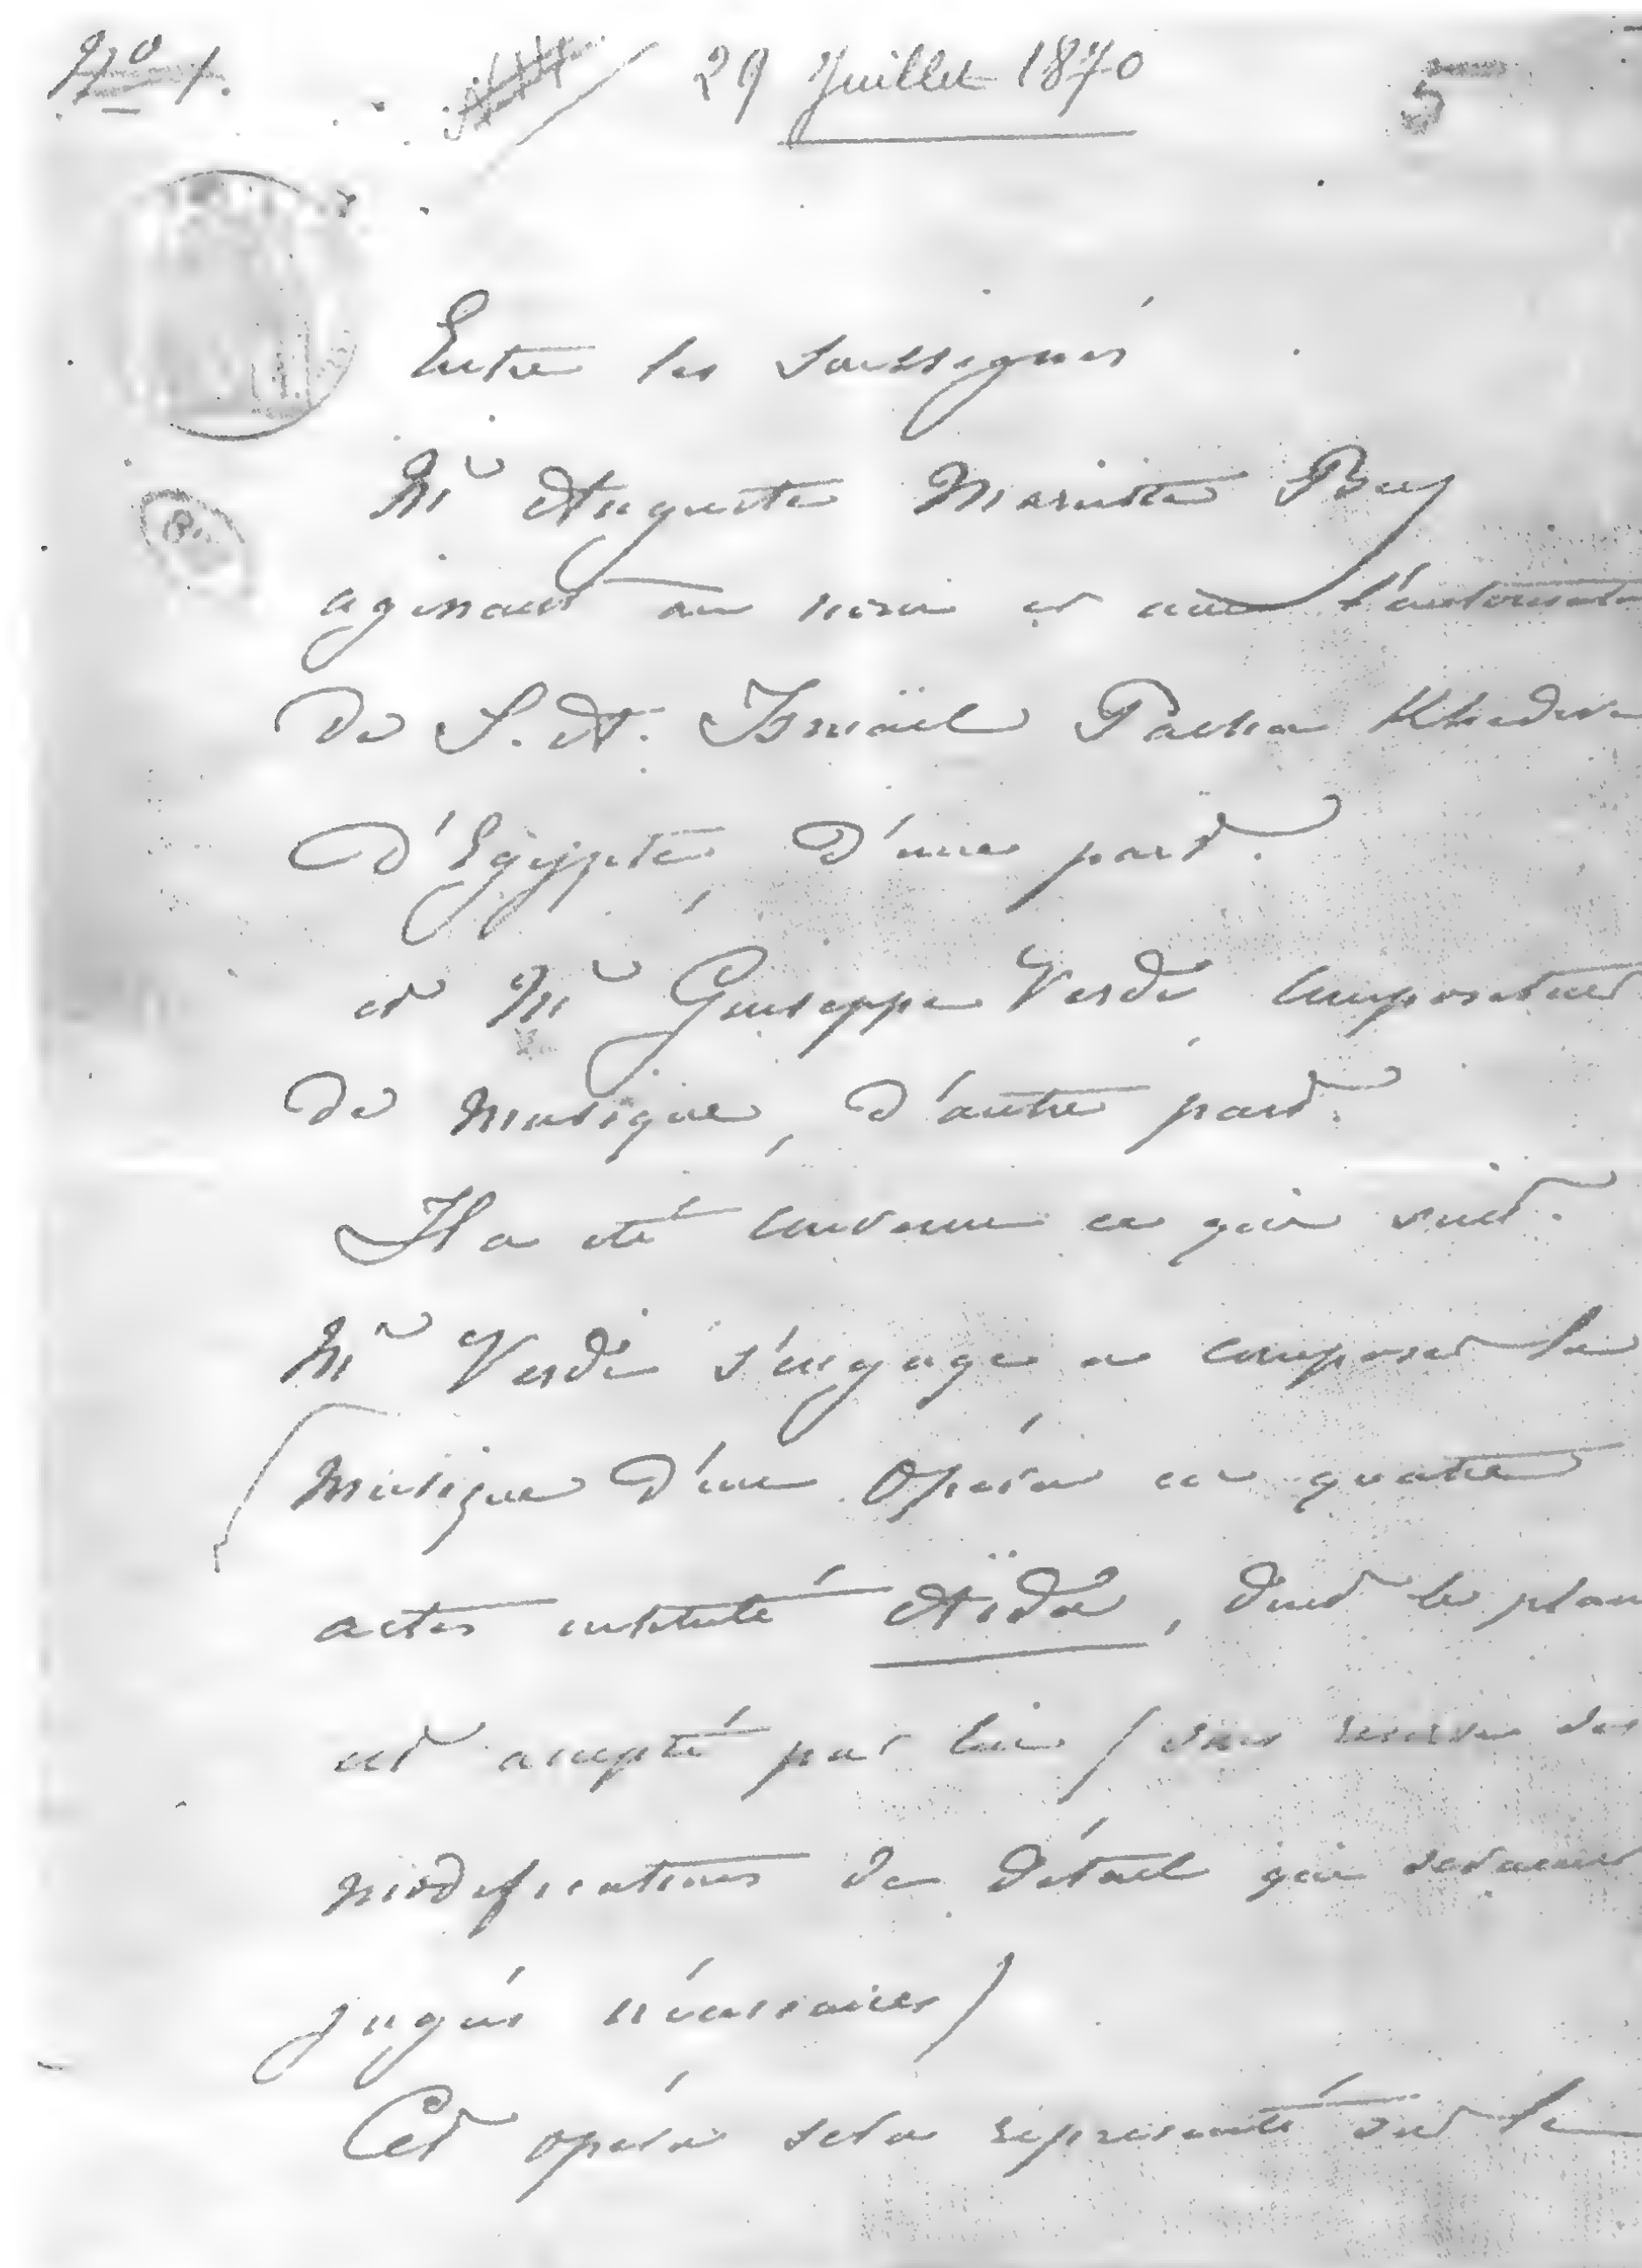 N° 1. 29 Juillet 1870 5
Entre les soussignés
Mr Auguste Mariette Bey
agissant au nom et avec l'autorisation
de S. A. Ismaïl Pacha Khedive
d'Egypte, d'une part.
et Mr Giuseppe Verdi compositeur
de musique, d'autre part.
Il a été convenu ce qui suit.
Mr Verdi s'engage a composer la
musique d'un Opéra en quatre
actes intitulé Aïda, dont le plan
est accepté par lui (sous reserve des
modifications de détail qui seraient
jugées nécessaires)
Cet opéra sera représenté sur le